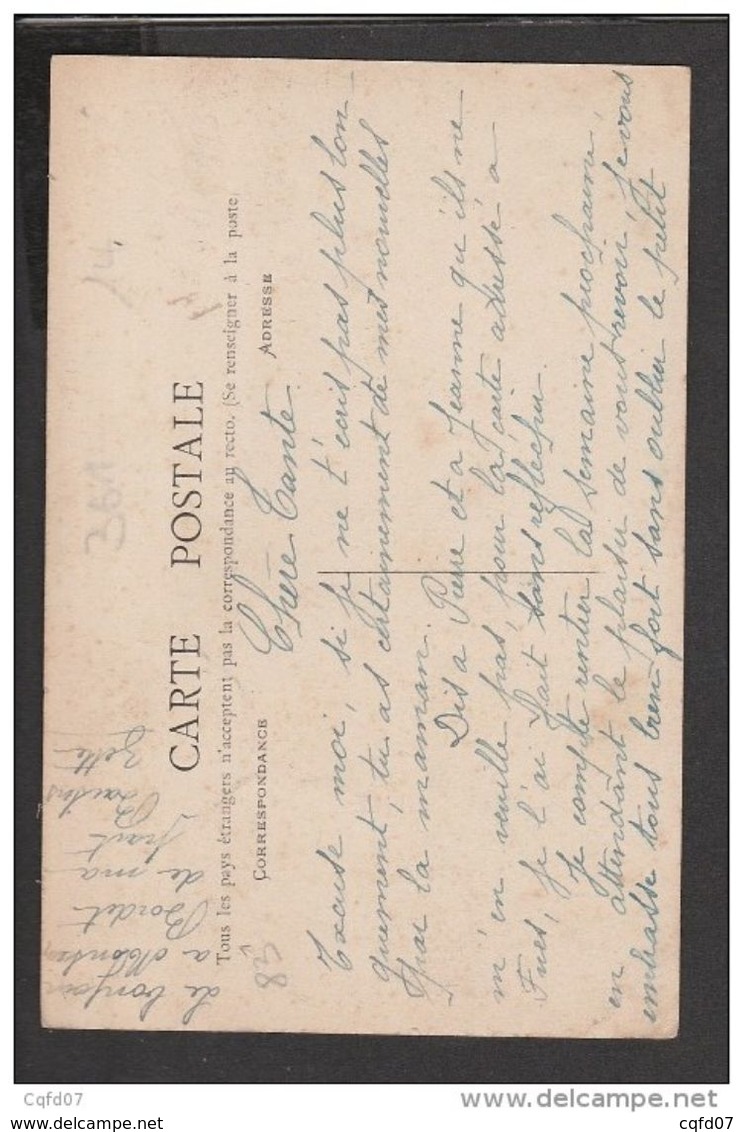 CARTE POSTALE
Tous les pays étrangers n'acceptent pas la correspondance au recto. (Se renseigner à la poste
CORRESPONDANCE
ADRESSE
Chère Tante
Excuse moi, si je ne t'écris pas plus lon-
guement, tu as certainement de mes nouvelles
par la maman.
Dis a Pierre et a Jeanne qu'ils ne
m'en veuille pas, pour la carte adressé a
Fues, je l'ai fait sans réfléchir.
Je compte rentrer la semaine prochaine,
en attendant le plaisir de vous revoir, Je vous
embrasse tous bien fort sans oublier le petit
le bonjour
a
Bordet
de ma
part
Baisers
Zette
361
14,
83
Cqfd07
delcampe.net
Cqfd07
website: www.delcampe.net
cqfd07